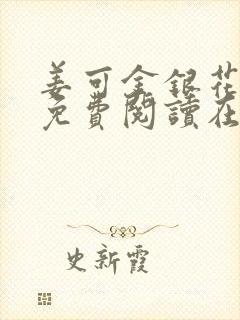 姜可金銀花
免費閱讀在
史新霞